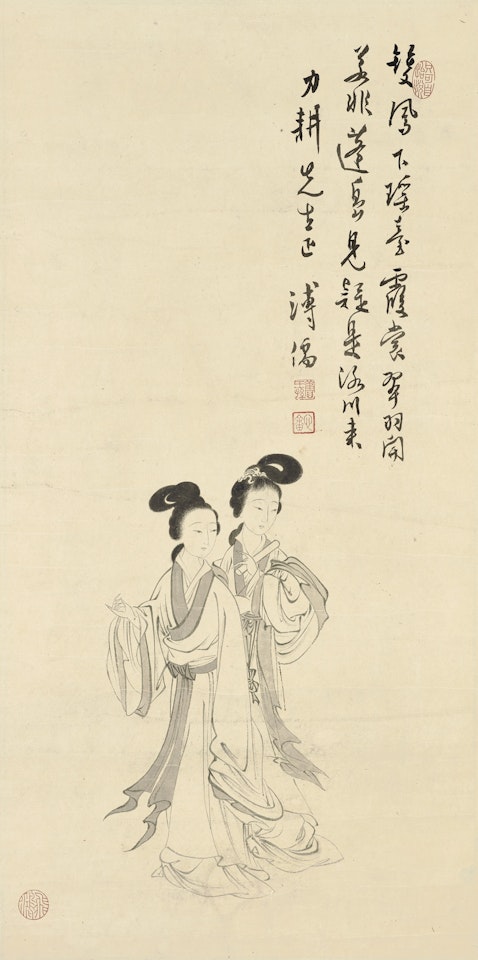 雙鳳下瑤臺霞裳翠羽開
若非蓬島見疑是洛川來
力耕先生正 溥儒